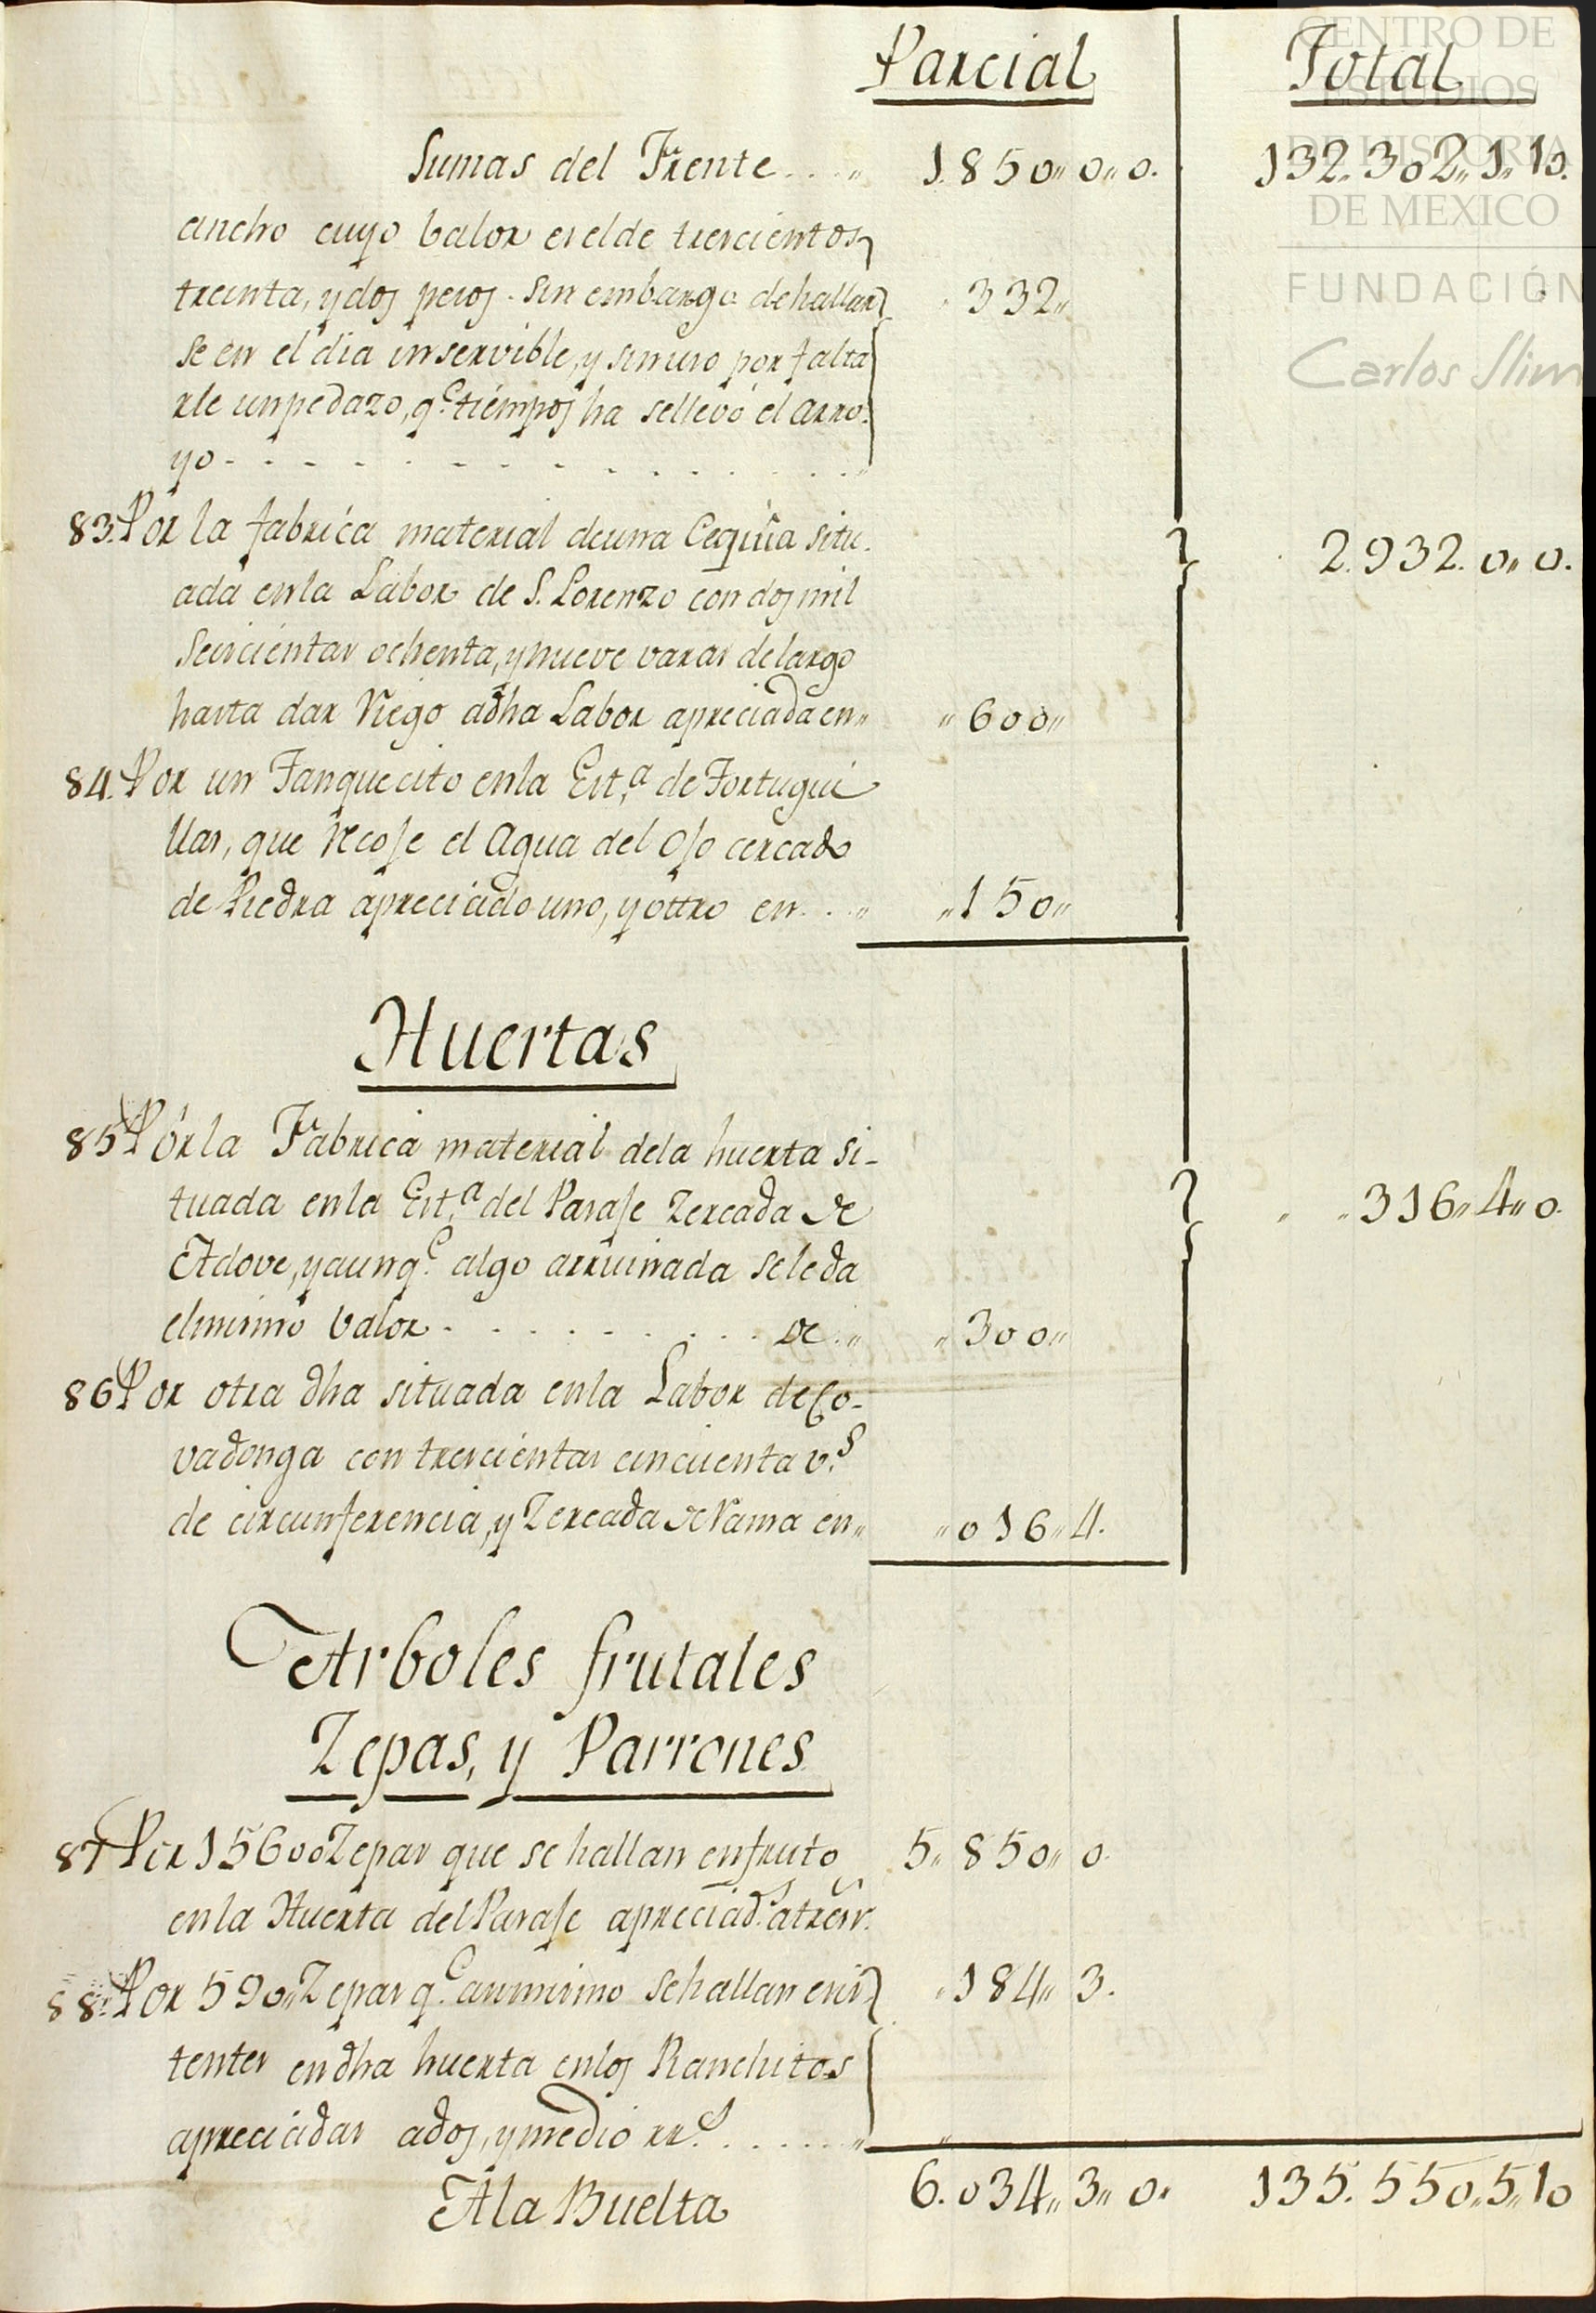 Parcial Total
Sumas del Frente.... 1.850,, 0,, 0. 132.302,, 1,, 10.
ancho cuyo balor es el de trescientos
treinta, y dos pesos. Sin embargo de hallar 332,,
se en el dia inservible, y sin uso por falta
rle un pedazo, q.e tiempos ha se llevó el arro.
yo - - - - - - - - - - - - - -
83. Por la fabrica material de una Cequia situ. 2.932. 0,, 0.
ada en la Labor de S. Lorenzo con dos mil
Seiscientas ochenta, y nueve varas de largo
hasta dar Riego a dha Labor apreciada en,, ,, 600,,
84. Por un Tanquecito en la Est.a de Tortugui
llas, que Recoje el Agua del Ojo cercado
de Piedra apreciado uno, y ottro en...,, ,, 150,,
Huertas
85 Por la Fabrica material de la huerta si-
tuada en la Est.a del Paraje Zercada de ,, ,, 316,, 4,, 0.
Adove, y aunq.e algo arruinada se le da
el mismo balor - . . . . . . . . de ,, ,, 300,,
86 Por otra dha situada en la Labor de Co-
vadonga con trescientas cincuenta v.s
de circunferencia, y Zercada de Rama en,, ,, 016,, 4.
Arboles frutales
Zepas, y Parrones
87 Por 15600 Zepas que se hallan en fruto 5,, 850,, 0.
en la Huerta del Paraje apreciad.s a tres rr.
88. Por 590,, Zepas q.e asimismo se hallan exis ,, 184,, 3.
tentes en dha huerta en los Ranchitos
apreciadas a dos, y medio rr.s . . . . . ,,
A la Buelta 6. 034,, 3,, 0. 135. 550,, 5,, 10
CENTRO DE
ESTUDIOS
DE HISTORIA
DE MEXICO
FUNDACIÓN
Carlos Slim